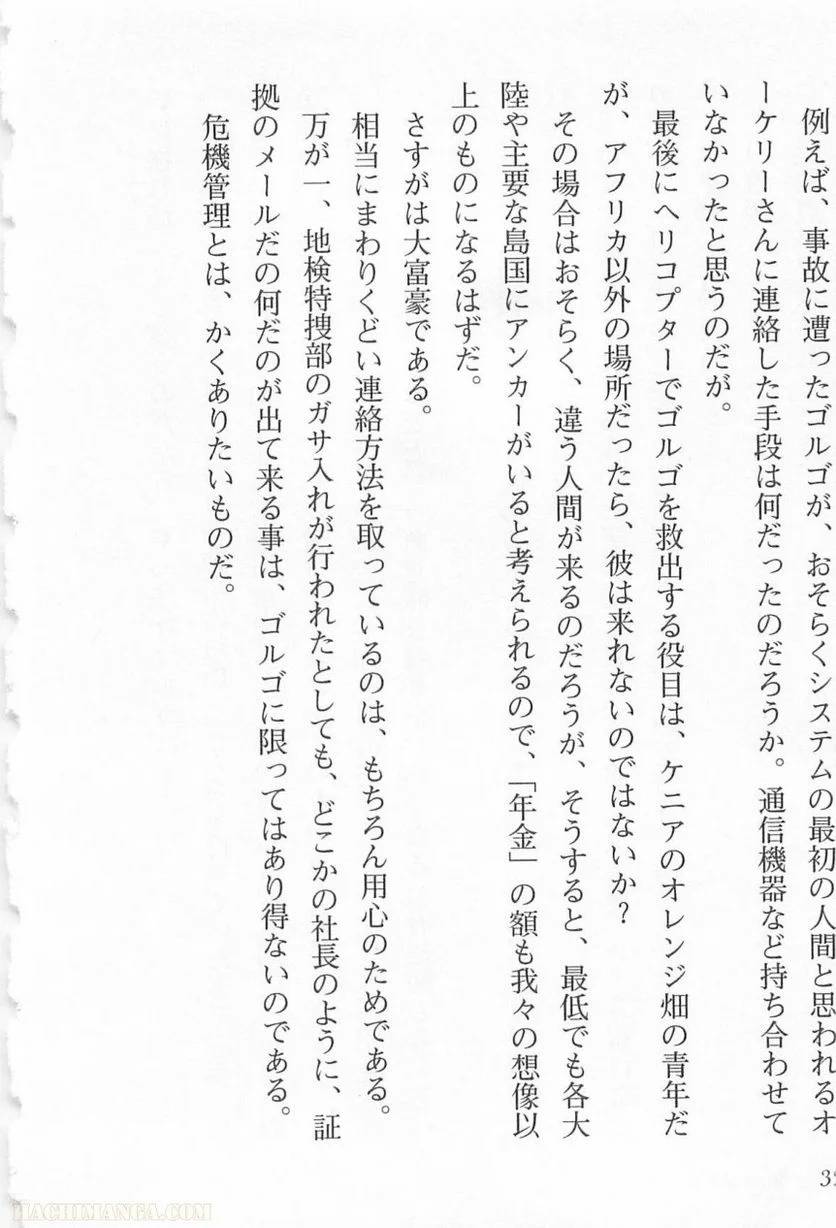 例えば、事故に遭ったゴルゴが、おそらくシステムの最初の人間と思われるオ
ーケリーさんに連絡した手段は何だったのだろうか。通信機器など持ち合わせて
いなかったと思うのだが。
最後にヘリコプターでゴルゴを救出する役目は、ケニアのオレンジ畑の青年だ
が、アフリカ以外の場所だったら、彼は来れないのではないか？
その場合はおそらく、違う人間が来るのだろうが、そうすると、最低でも各大
陸や主要な島国にアンカーがいると考えられるので、「年金」の額も我々の想像以
上のものになるはずだ。
さすがは大富豪である。
相当にまわりくどい連絡方法を取っているのは、もちろん用心のためである。
万が一、地検特捜部のガサ入れが行われたとしても、どこかの社長のように、証
拠のメールだの何だのが出て来る事は、ゴルゴに限ってはあり得ないのである。
危機管理とは、かくありたいものだ。
HACHIMANGA.COM